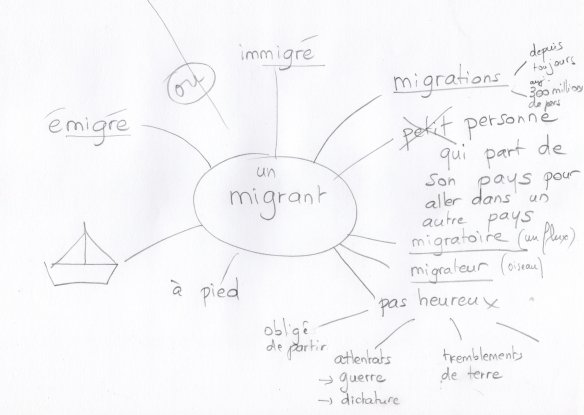 ou
immigré
émigré
migrations
depuis
toujours
300 millions
de pers
petit personne
qui part de
son pays pour
aller dans un
autre pays
un
migrant
migratoire (un flux)
migrateur (oiseau)
à pied
pas heureux
obligé
de partir
attentats
→ guerre
→ dictature
tremblements
de terre